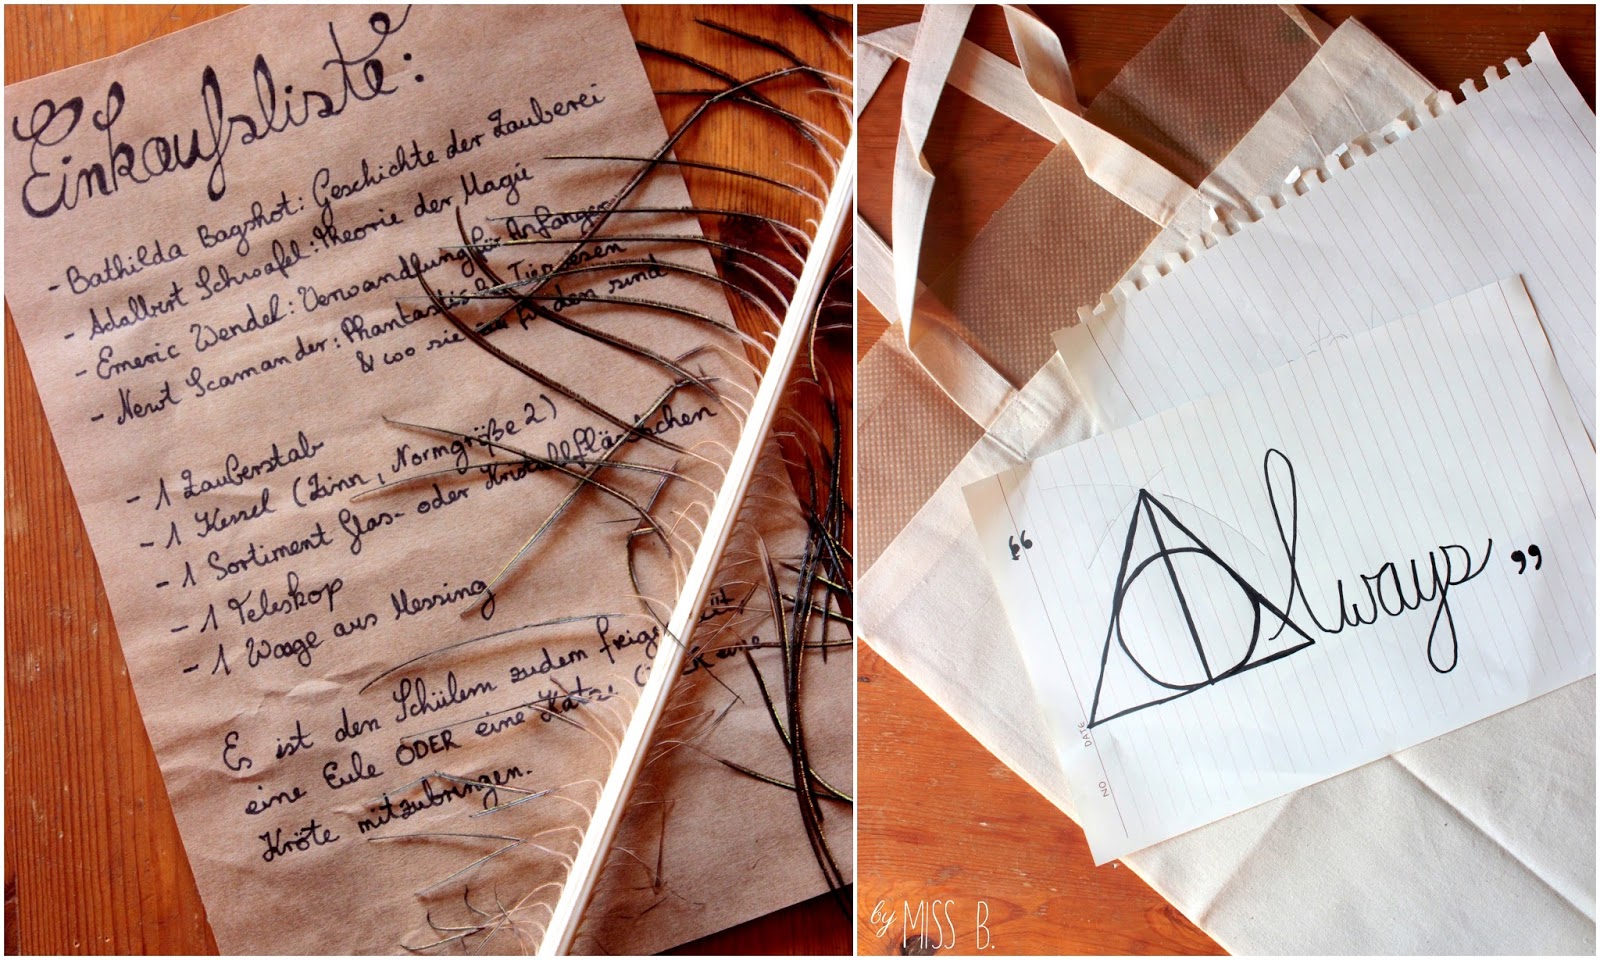 Einkaufsliste:
- Bathilda Bagshot: Geschichte der Zauberei
- Adalbert Schwafel: Theorie der Magie
- Emeric Wendel: Verwandlung für Anfänger
- Newt Scamander: Phantastische Tierwesen
& wo sie zu finden sind
- 1 Zauberstab
- 1 Kessel (Zinn, Normgröße 2)
- 1 Sortiment Glas- oder Kristallfläschchen
- 1 Teleskop
- 1 Waage aus Messing
Es ist den Schülern zudem freigestellt,
eine Eule ODER eine Katze ODER eine
Kröte mitzubringen.
by MISS B.
“ Always ”
NO DATE